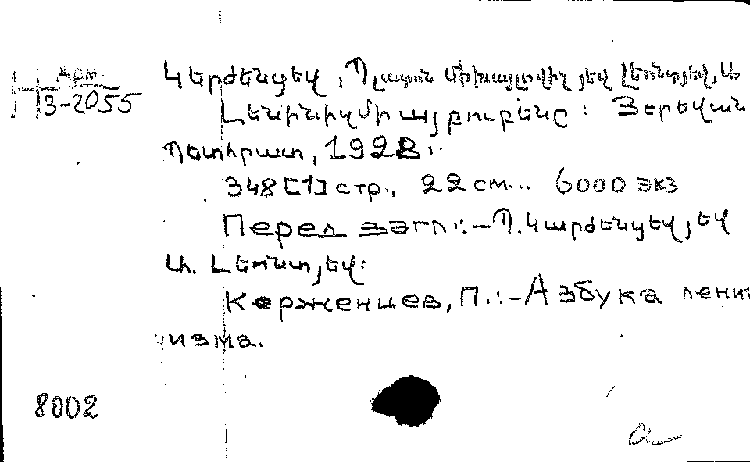 Арм.
3-2055
Կերժենցեվ, Պլատոն Միխայլովիչ յեվ Լեոնտյեվ, Ա.
Լենինիզմի այբուբենը: Յերեվան
Պետհրատ, 1928.
348 [1] стр., 22 см... 6000 экз
Перед загл.:-Պ. Կարժենցեվ յեվ
Ա. Լեոնտյեվ:
Керженцев, П.:-Азбука ленин
изма.
8002